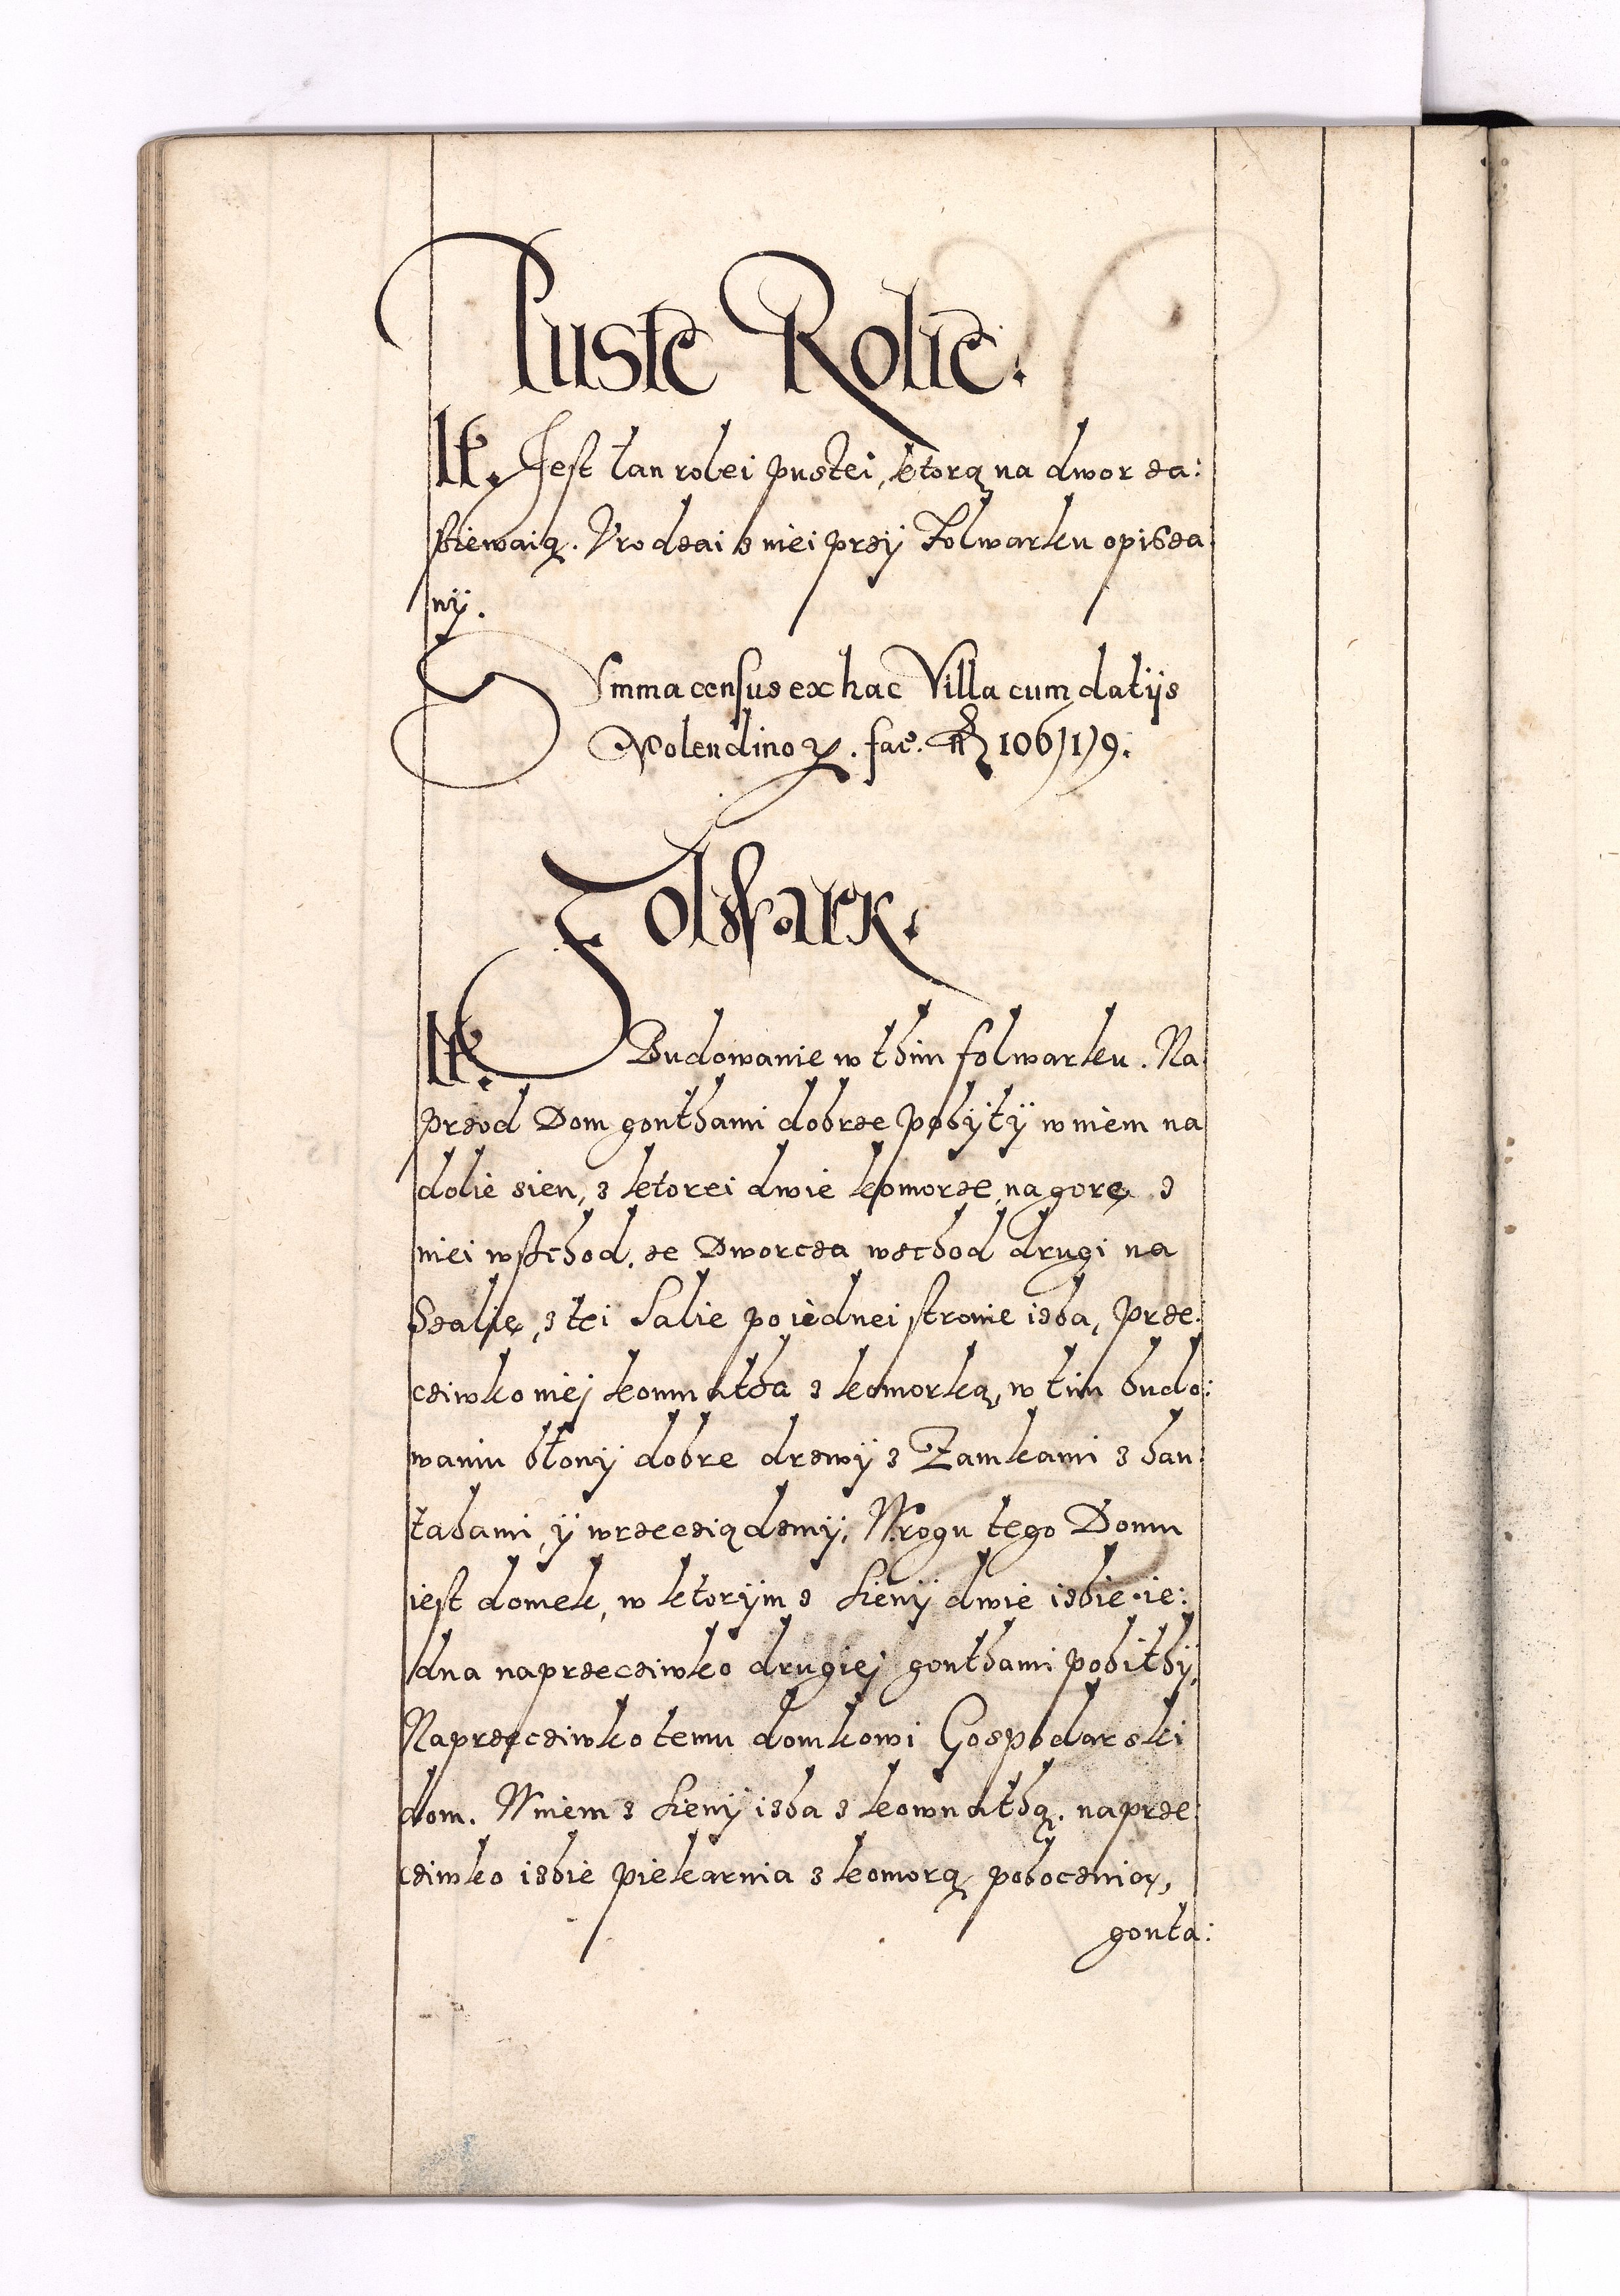 Puste Rolie.
It. Jest łan rolei pustei, ktorą na dwor za:
sziewaią. Vrodzai z niei przÿ Folwarku opisza:
nÿ.
Summa census ex hac Villa cum datijs
Molendinoꝝ. fac. 106/1/9.
Folwark.
It. Budowanie w thim folwarku. Na:
przod Dom gonthami dobrze pobÿtÿ w niem na
dolie sien, z ktorei dwie komorze, na gorę z
niei wschod. ze Dworcza wschod drugi na
Szalię, z tei Salie po iednei stronie izba, prze:
cziwko niej komnatha z komorką, w tim budo:
waniu błonÿ dobre drzwÿ z Zamkami z han:
tabami, ÿ wrzecziądzmÿ, W rogu tego Domu
iest domek, w ktorÿm z sienÿ dwie izbie ie:
dna naprzecziwko drugiej gonthami pobithÿ,
Naprzecziwko temu domkowi Gospodarski
dom. W niem z sienÿ izba z komnathą. naprze:
cziwko izbie piekarnia z komorą pobocznią,
gonta: